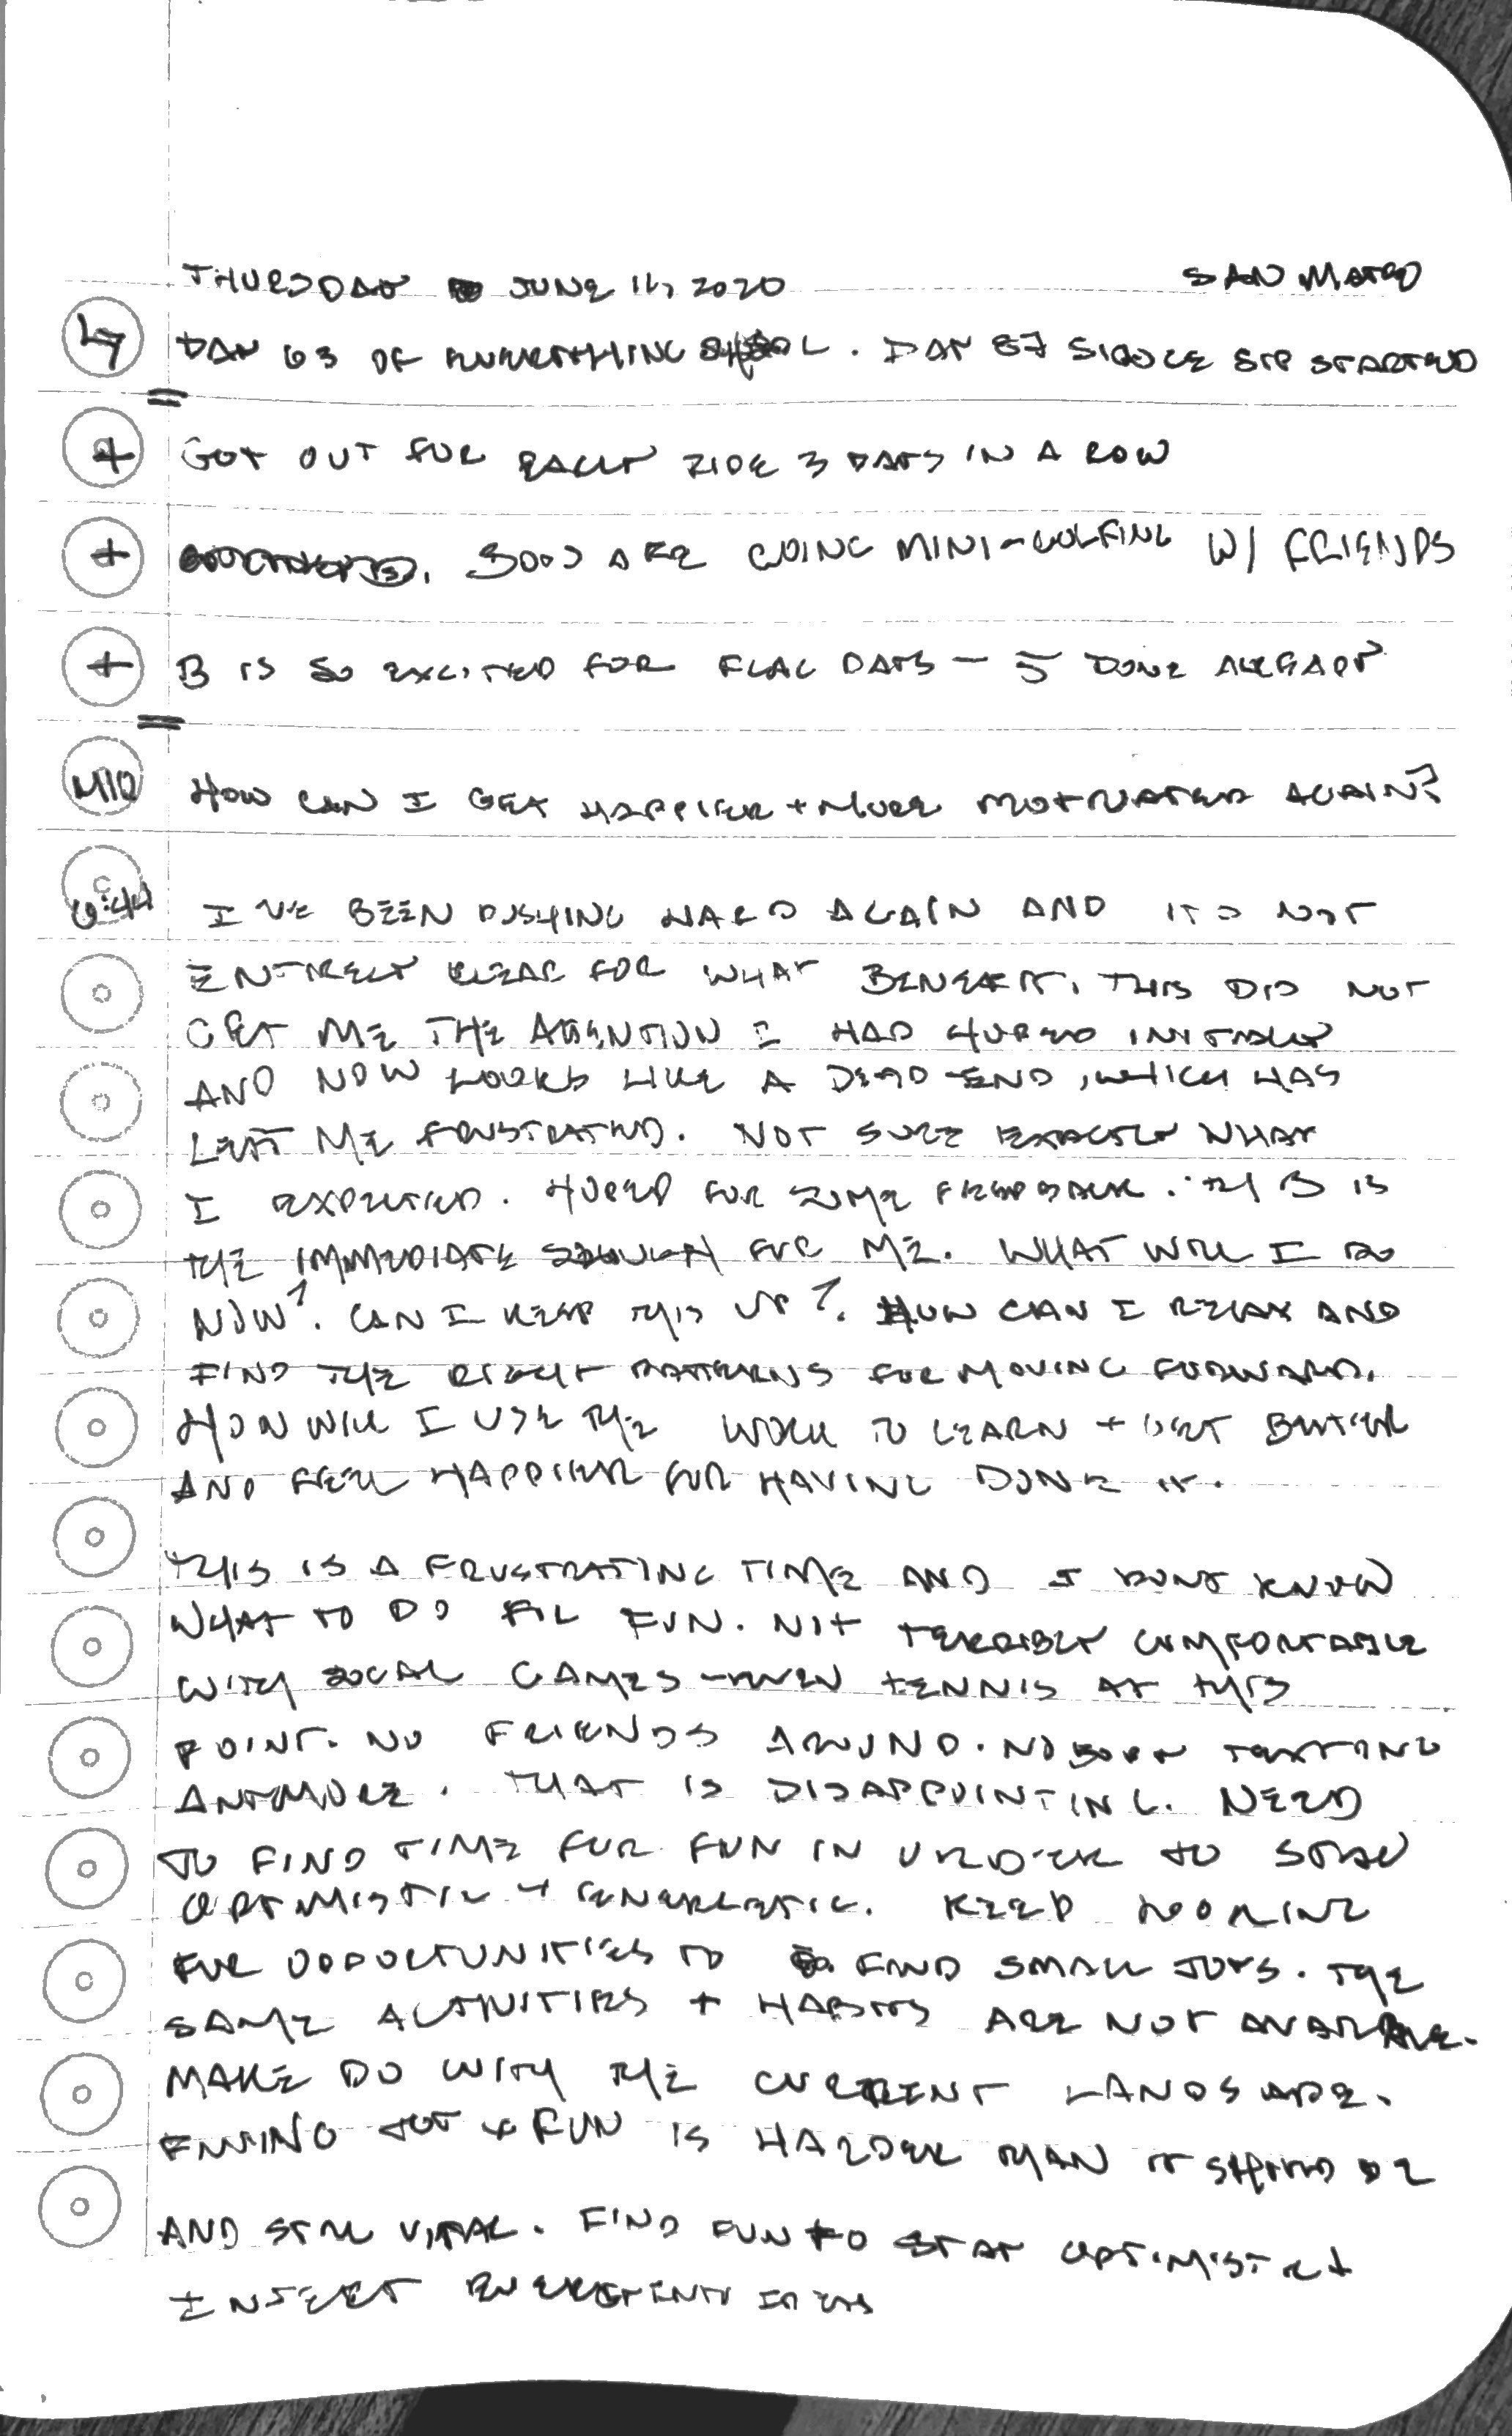 THURSDAY JUNE 11, 2020 SAN MATEO
DAY 63 OF EVERYTHING. DAY 87 SINCE SIP STARTED
+ GOT OUT FOR EARLY RIDE 3 DAYS IN A ROW
+ BOYS ARE GOING MINI-GOLFING W/ FRIENDS
+ B IS SO EXCITED FOR FLAG DAYS - 5 DONE ALREADY
HOW CAN I GET HAPPIER + MORE MOTIVATED AGAIN?
6:44 I'VE BEEN PUSHING HARD AGAIN AND ITS NOT
ENTIRELY CLEAR FOR WHAT BENEFIT. THIS DID NOT
GET ME THE ATTENTION I HAD HOPED INITIALLY
AND NOW LOOKS LIKE A DEAD-END, WHICH HAS
LEFT ME FRUSTRATED. NOT SURE EXACTLY WHAT
I EXPECTED. HOPED FOR SOME FEEDBACK. IS
THE IMMEDIATE FOR ME. WHAT WILL I DO
NOW?. CAN I KEEP THIS UP?. HOW CAN I RELAX AND
FIND THE RIGHT PATTERNS FOR MOVING FORWARD.
HOW WILL I USE THE WORK TO LEARN + GET BETTER
AND FEEL HAPPIER FOR HAVING DONE IT.
THIS IS A FRUSTRATING TIME AND I DONT KNOW
WHAT TO DO FOR FUN. NOT TERRIBLY COMFORTABLE
WITH SOCIAL GAMES - EVEN TENNIS AT THIS
POINT. NO FRIENDS AROUND. NOBODY TEXTING
ANYMORE. THAT IS DISAPPOINTING. NEED
TO FIND TIME FOR FUN IN ORDER TO STAY
OPTIMISTIC + ENERGETIC. KEEP LOOKING
FOR OPPORTUNITIES TO FIND SMALL JOYS. THE
SAME ACTIVITIES + HABITS ARE NOT AVAILABLE.
MAKE DO WITH THE CURRENT LANDSCAPE.
FINDING JOY + FUN IS HARDER THAN IT SHOULD BE
AND STILL VITAL. FIND FUN TO STAY OPTIMISTIC +
INJECT INTO